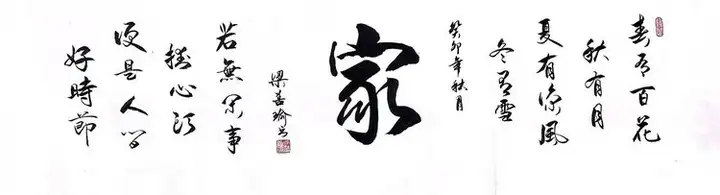 春有百花
秋有月
夏有凉風
冬有雪
癸卯年秋月
家
梁善瑜书
若無闲事
挂心头
便是人间
好時節